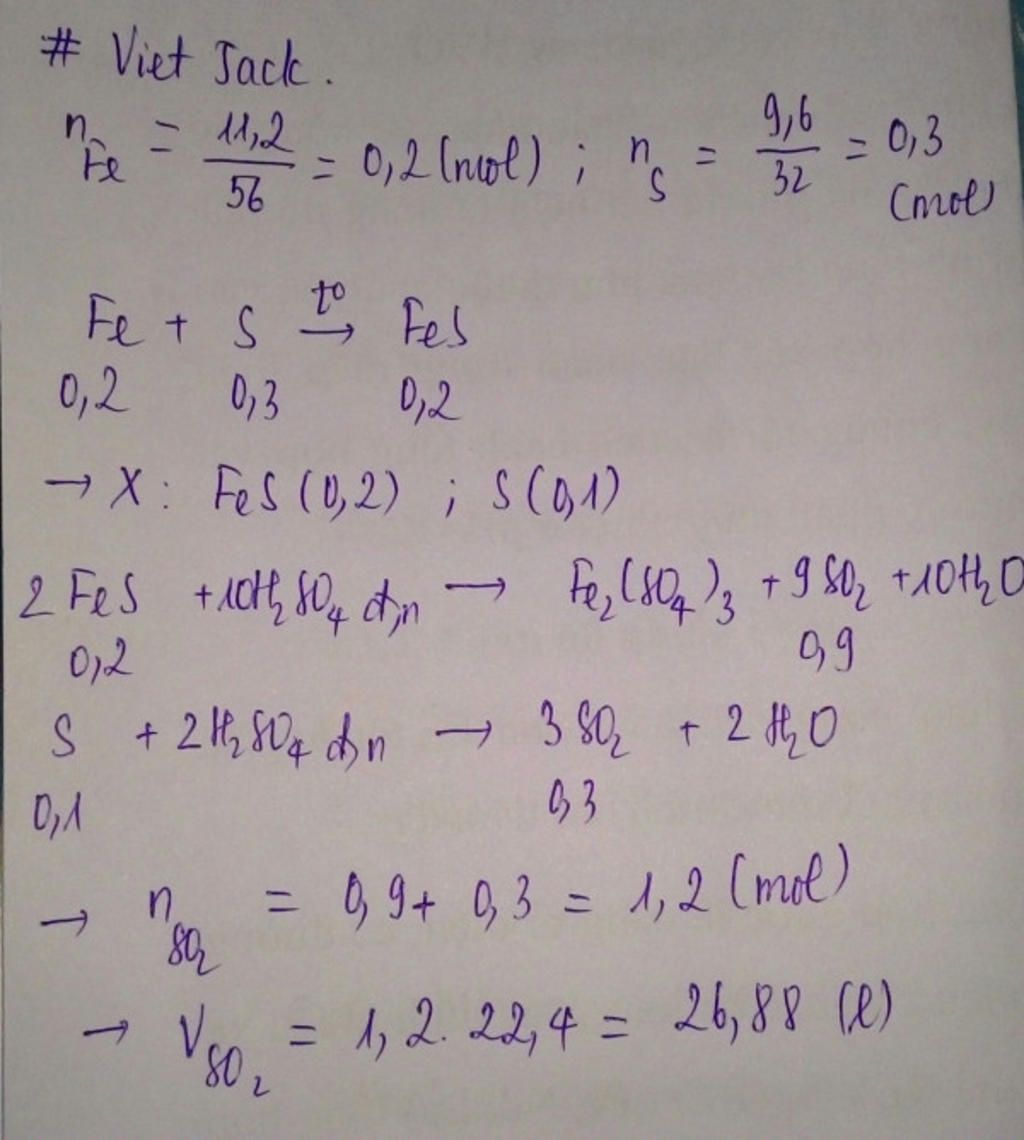 # Viet Jack.
n_Fe = 11,2/56 = 0,2 (mol) ; n_S = 9,6/32 = 0,3 (mol)
Fe + S →(t°) FeS
0,2 0,3 0,2
→ X : FeS (0,2) ; S (0,1)
2 FeS + 10H₂SO₄ đ,n → Fe₂(SO₄)₃ + 9 SO₂ + 10H₂O
0,2 0,9
S + 2 H₂SO₄ đ,n → 3 SO₂ + 2 H₂O
0,1 0,3
→ n_SO₂ = 0,9 + 0,3 = 1,2 (mol)
→ V_SO₂ = 1,2. 22,4 = 26,88 (l)